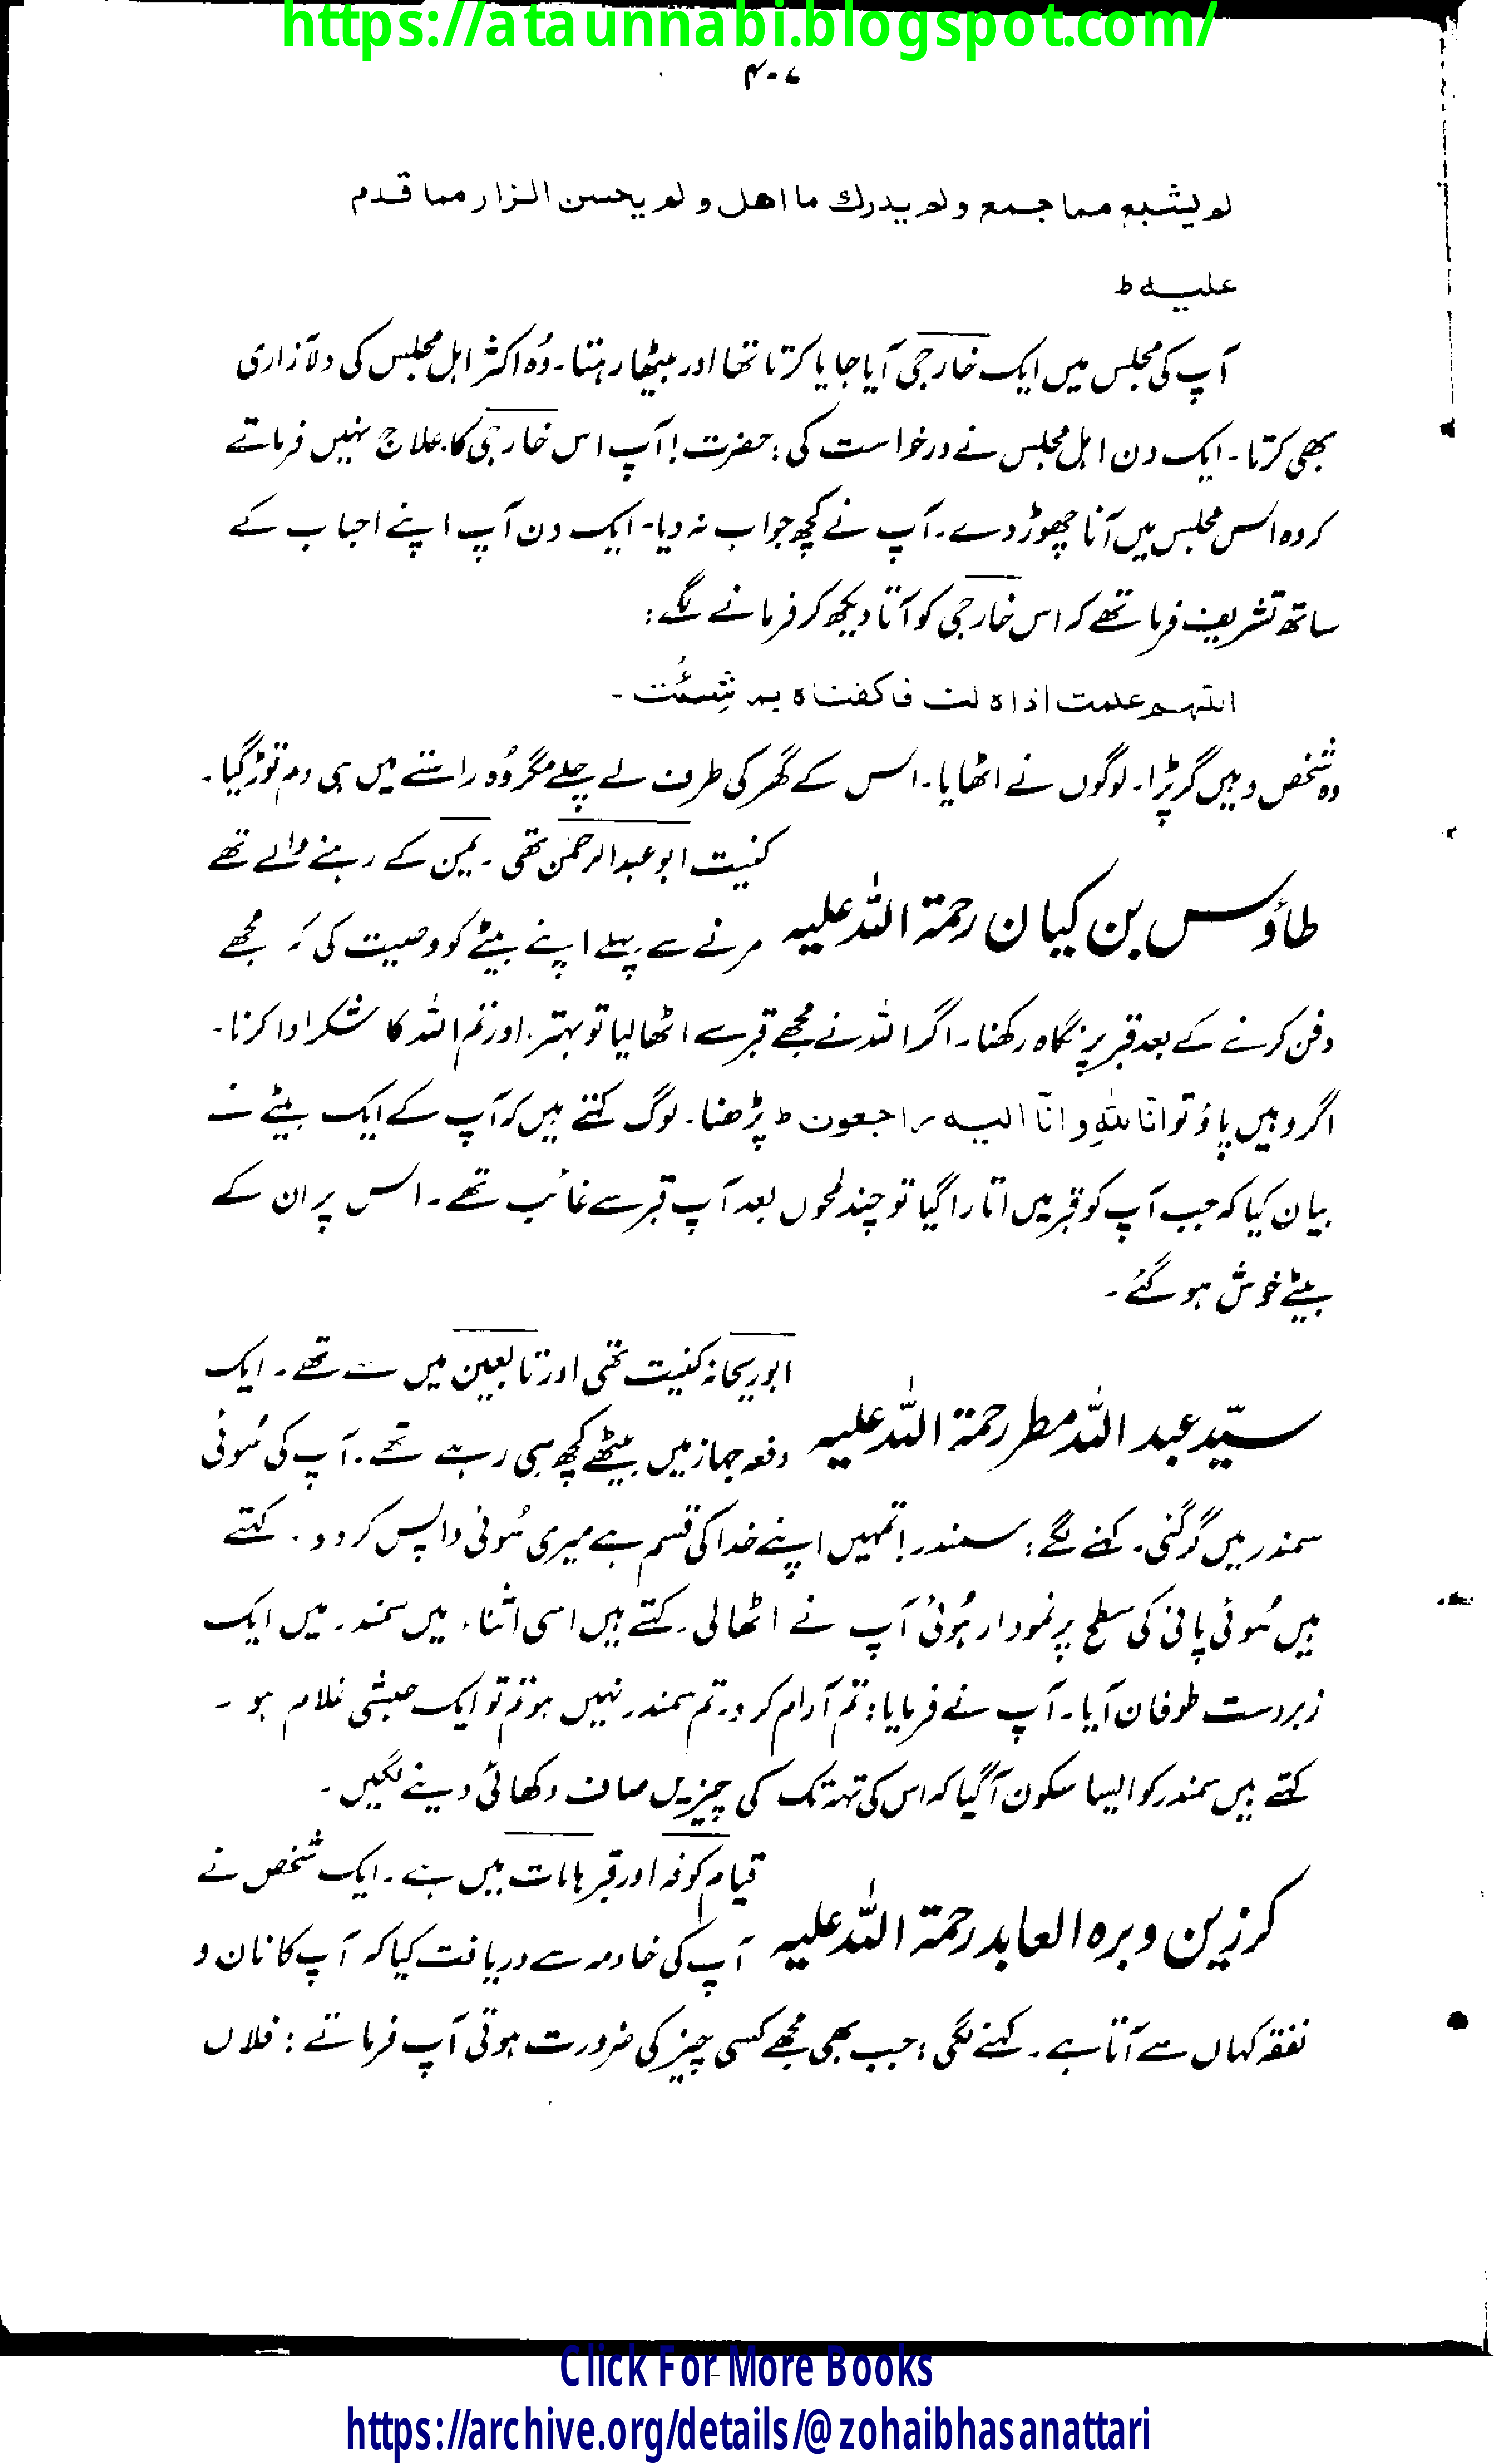 https://ataunnabi.blogspot.com/
۴۰۷
لم یشبع مما جمع ولم یدرك ما اهل و لم یحسن الزار مما قدم
علیہ ط
آپ کی مجلس میں ایک خارجی آیا جایا کرتا تھا اور بیٹھا رہتا۔ وُہ اکثر اہل مجلس کی دلآزاری
بھی کرتا۔ ایک دن اہل مجلس نے درخواست کی : حضرت! آپ اس خارجی کا علاج نہیں فرماتے
کہ وہ اس مجلس میں آنا چھوڑ دے۔ آپ نے کچھ جواب نہ دیا۔ ایک دن آپ اپنے احباب کے
ساتھ تشریف فرما تھے کہ اس خارجی کو آتا دیکھ کر فرمانے لگے :
اللّٰہم علمت اذاہ لنا فاکفناہ بم شِئُت ۔
وہ شخص وہیں گر پڑا۔ لوگوں نے اٹھایا۔ اس کے گھر کی طرف لے چلے مگر وُہ راستے میں ہی دم توڑ گیا۔
کنیت ابو عبدالرحمٰن تھی ۔ یمن کے رہنے والے تھے
طاؤس بن کیان رحمۃ اللہ علیہ مرنے سے پہلے اپنے بیٹے کو وصیت کی کہ مجھے
دفن کرنے کے بعد قبر پر نگاہ رکھنا۔ اگر اللہ نے مجھے قبر سے اٹھا لیا تو بہتر، اور تم اللہ کا شکر ادا کرنا۔
اگر وہیں پاؤ تو انّا للہِ و انّا الیہ راجعون ط پڑھنا۔ لوگ کہتے ہیں کہ آپ کے ایک بیٹے نے
بیان کیا کہ جب آپ کو قبر میں اتارا گیا تو چند لمحوں بعد آپ قبر سے غائب تھے ۔ اس پر ان کے
بیٹے خوش ہو گئے ۔
ابو ریحانہ کنیت تھی اور تابعین میں سے تھے ۔ ایک
سیّد عبد اللہ مطر رحمۃ اللہ علیہ دفعہ جہاز میں بیٹھے کچھ سی رہے تھے ۔ آپ کی سُوئی
سمندر میں گر گئی۔ کہنے لگے : سمندر! تمہیں اپنے خدا کی قسم ہے میری سُوئی واپس کر دو ۔ کہتے
ہیں سُوئی پانی کی سطح پر نمودار ہُوئی آپ نے اٹھا لی۔ کہتے ہیں اسی اثناء میں سمندر میں ایک
زبردست طوفان آیا۔ آپ نے فرمایا : تم آرام کرو۔ تم سمندر نہیں ہو تم تو ایک حبشی غلام ہو ۔
کہتے ہیں سمندر کو ایسا سکون آ گیا کہ اس کی تہہ تک کی چیزیں صاف دکھائی دینے لگیں ۔
قیام کوفہ اور قبر ہامات میں ہے ۔ ایک شخص نے
کرزین وبرہ العابد رحمۃ اللہ علیہ آپ کی خادمہ سے دریافت کیا کہ آپ کا نان و
نفقہ کہاں سے آتا ہے ۔ کہنے لگی : جب بھی مجھے کسی چیز کی ضرورت ہوتی آپ فرماتے : فلاں
Click For More Books
https://archive.org/details/@zohaibhasanattari